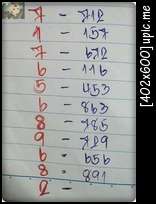 7 - 712
1 - 157
7 - 672
6 - 116
5 - 453
6 - 863
8 - 785
9 - 729
6 - 656
8 - 891
2 -
[402x600] upic.me